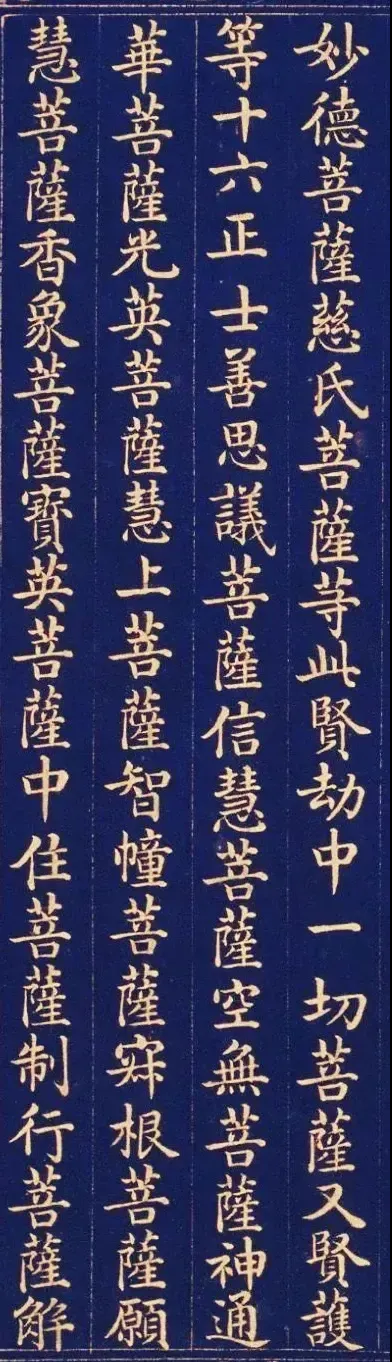 妙德菩薩慈氏菩薩䒭此賢劫中一切菩薩又賢護
等十六正士善思議菩薩信慧菩薩空無菩薩神通
華菩薩光英菩薩慧上菩薩智幢菩薩㝥根菩薩願
慧菩薩香象菩薩寶英菩薩中住菩薩制行菩薩解